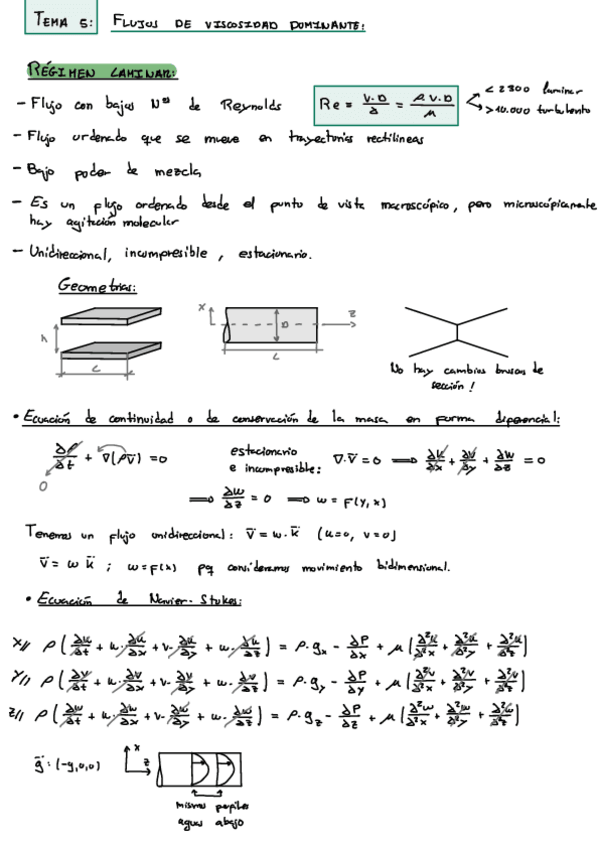 TEMA 5: FLUJOS DE VISCOSIDAD DOMINANTE:
RÉGIMEN LAMINAR:
- Flujo con bajos Nos de Reynolds Re = V·D/ν = ρ·V·D/μ < 2300 laminar
> 10.000 turbulento
- Flujo ordenado que se mueve en trayectorias rectilíneas
- Bajo poder de mezcla
- Es un flujo ordenado desde el punto de vista macroscópico, pero microscópicamente
hay agitación molecular
- Unidireccional, incompresible, estacionario.
Geometrías:
h L
x D z L
No hay cambios bruscos de
sección!
• Ecuación de continuidad o de conservación de la masa en forma diferencial:
∂ρ/∂t + ∇(ρv̄) = 0 estacionario
e incompresible: ∇·v̄ = 0 ⟹ ∂u/∂x + ∂v/∂y + ∂w/∂z = 0
0
⟹ ∂w/∂z = 0 ⟹ w = F(y, x)
Tenemos un flujo unidireccional: v̄ = w·k̄ (u=0, v=0)
v̄ = w k̄ ; w = F(x) pq consideramos movimiento bidimensional.
• Ecuación de Navier-Stokes:
X// ρ(∂u/∂t + u·∂u/∂x + v·∂u/∂y + w·∂u/∂z) = ρ·gx - ∂P/∂x + μ[∂²u/∂²x + ∂²u/∂²y + ∂²u/∂²z]
Y// ρ(∂v/∂t + u·∂v/∂x + v·∂v/∂y + w·∂v/∂z) = ρ·gy - ∂P/∂y + μ[∂²v/∂²x + ∂²v/∂²y + ∂²v/∂²z]
Z// ρ(∂w/∂t + u·∂w/∂x + v·∂w/∂y + w·∂w/∂z) = ρ·gz - ∂P/∂z + μ[∂²w/∂²x + ∂²w/∂²y + ∂²w/∂²z]
ḡ: (-g,0,0) x z
mismos perfiles
aguas abajo